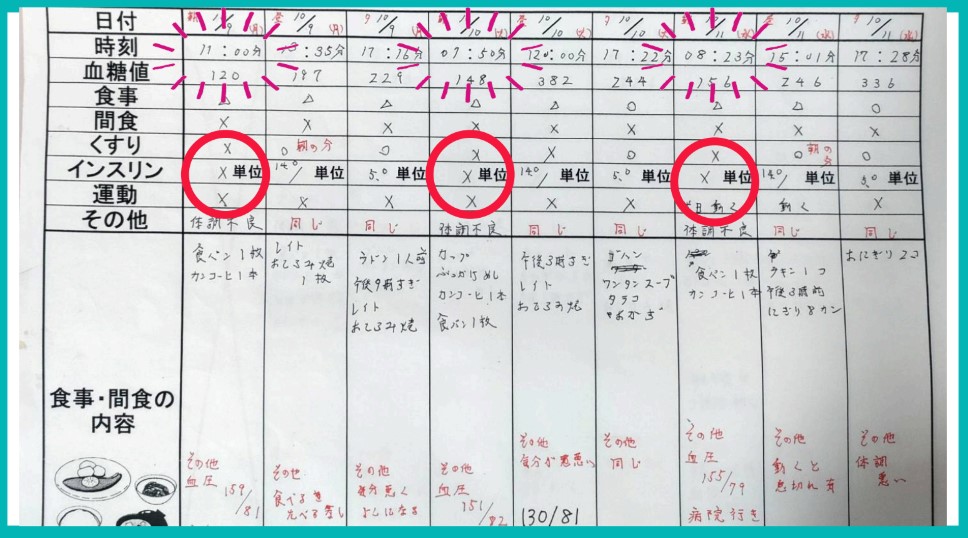 日付 朝 10/9 (月) 昼 10/9 (月) 夕 10/9 (月) 朝 10/10 (火) 昼 10/10 (火) 夕 10/10 (火) 朝 10/11 (水) 昼 10/11 (水) 夕 10/11 (水)
時刻 11:00分 :35分 17:16分 07:50分 :00分 17:22分 08:23分 15:01分 17:28分
血糖値 120 197 229 148 382 244 156 246 336
食事 △ △ △ △ △ ○ △ △ ○
間食 × × × × × × × × ×
くすり × ○ 朝の分 ○ × × ○ × ○ 朝の分 ○
インスリン × 単位 14⁰/ 単位 5.⁰ 単位 × 単位 14⁰/ 単位 5.⁰ 単位 × 単位 14⁰/ 単位 5.⁰ 単位
運動 × × × × × × 動く 動く ×
その他 体調不良 同じ 同じ 体調不良 同じ 同じ 体調不良 同じ 同じ
食事・間食の
内容
食パン1枚
カンコーヒ1本
その他
血圧
159/81
レイト
おこのみ焼
1枚
その他
食べる
ウドン1人前
午後9時すぎ
レイト
おこのみ焼
その他
気分悪く
カップ
カンコーヒ1本
食パン1枚
その他
血圧
151/82
午後3時すぎ
レイト
おこのみ焼
その他
気分が悪い
130/81
ワンタンスープ
タラコ
その他
同じ
食パン1枚
カンコーヒ1本
その他
血圧
155/79
病院行き
1コ
午後3時
にぎり8カン
その他
動くと
息切れ
おにぎり2コ
その他
体調
悪い